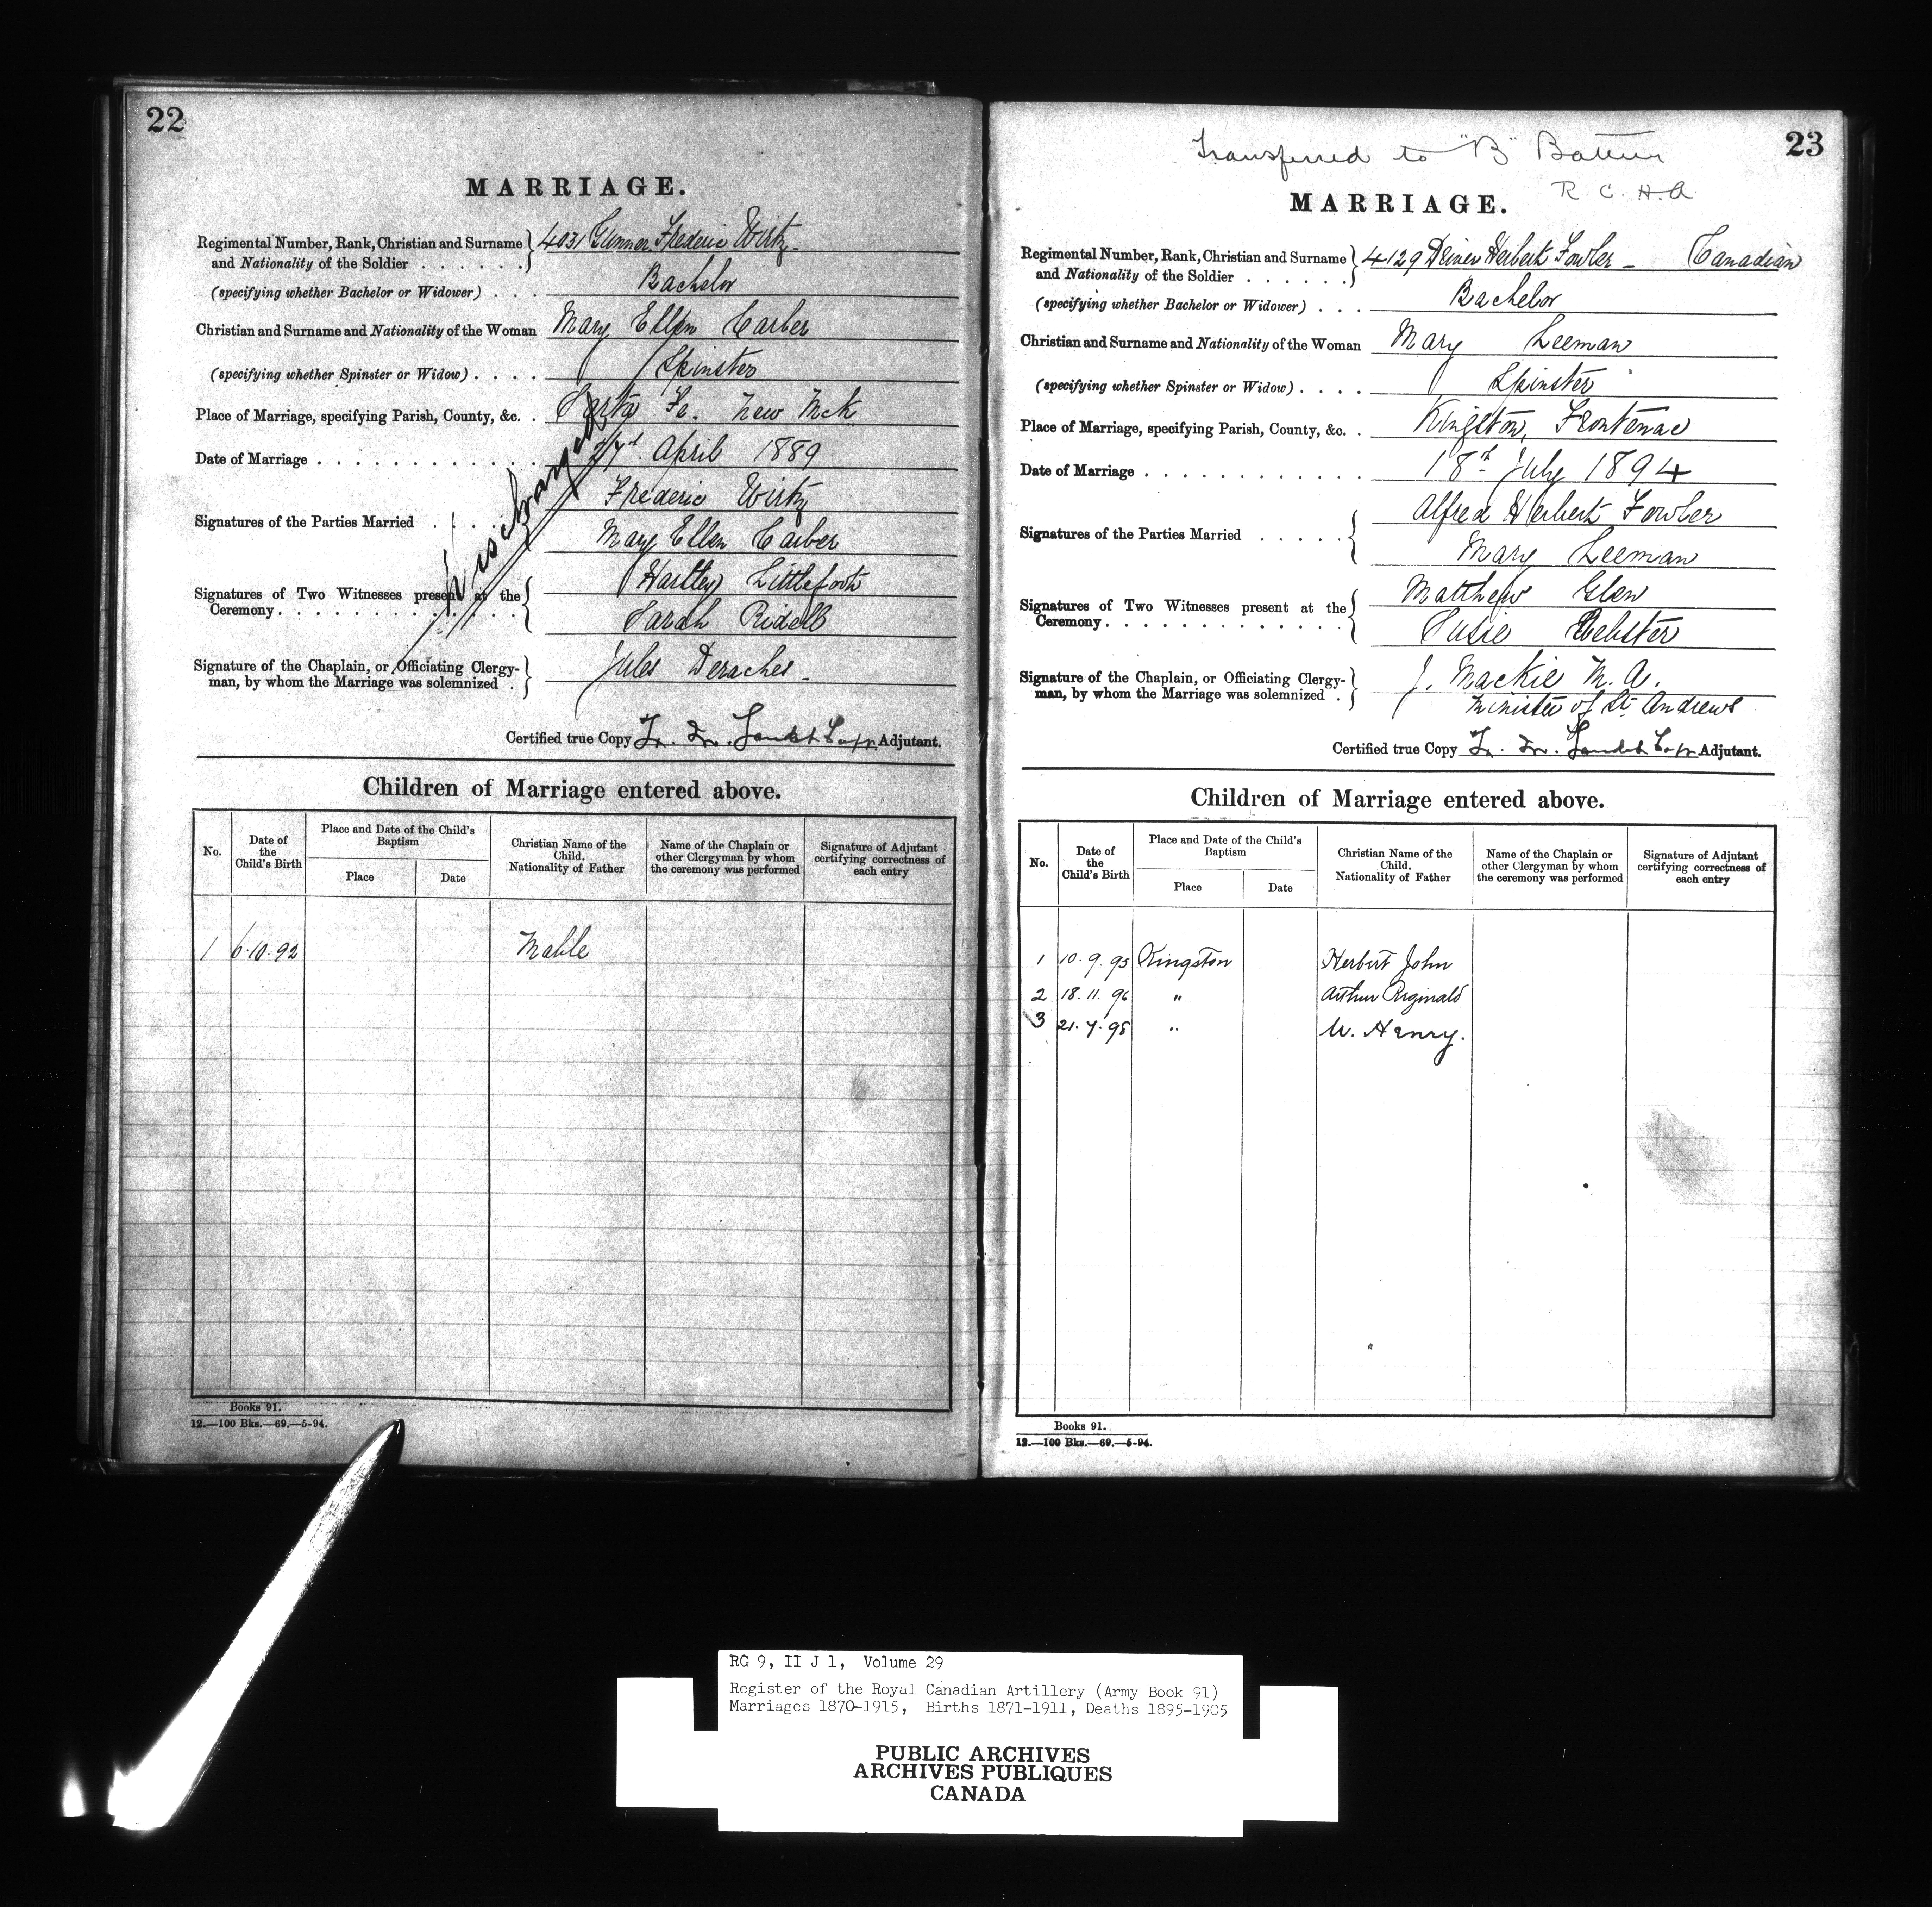 22
MARRIAGE.
Regimental Number, Rank, Christian and Surname and Nationality of the Soldier . . . . . . } 4031 Gunner Frederic Wirtz
(specifying whether Bachelor or Widower) . . . Bachelor
Christian and Surname and Nationality of the Woman Mary Ellen Carber
(specifying whether Spinster or Widow) . . . . Spinster
Place of Marriage, specifying Parish, County, &c. . Fe. New
Date of Marriage . . . . . . . . . . . . April 1889
Discharged
Signatures of the Parties Married . . . . Frederic Wirtz
Mary Ellen Carber
Signatures of Two Witnesses present at the Ceremony. . . . . . . . . . . . . { Hartley
Sarah Ridell
Signature of the Chaplain, or Officiating Clergyman, by whom the Marriage was solemnized . } Jules Deraches
Certified true Copy Adjutant.
Children of Marriage entered above.
No. Date of the Child's Birth Place and Date of the Child's Baptism Place Date Christian Name of the Child. Nationality of Father Name of the Chaplain or other Clergyman by whom the ceremony was performed Signature of Adjutant certifying correctness of each entry
1 6.10.92 Mable
Books 91.
12.—100 Bks.—69.—5-94.
23
Transferred to "B" Battery
R. C. H. A
MARRIAGE.
Regimental Number, Rank, Christian and Surname and Nationality of the Soldier . . . . . . } 4129 Driver Herbert Fowler — Canadian
(specifying whether Bachelor or Widower) . . . Bachelor
Christian and Surname and Nationality of the Woman Mary Leeman
(specifying whether Spinster or Widow) . . . . Spinster
Place of Marriage, specifying Parish, County, &c. . Kingston, Frontenac
Date of Marriage . . . . . . . . . . . . 18th July 1894
Signatures of the Parties Married . . . . . { Alfred Herbert Fowler
Mary Leeman
Signatures of Two Witnesses present at the Ceremony. . . . . . . . . . . . . { Matthew Glen
Susie Webster
Signature of the Chaplain, or Officiating Clergyman, by whom the Marriage was solemnized . } J. Mackie M. A.
Minister of St. Andrews
Certified true Copy Adjutant.
Children of Marriage entered above.
No. Date of the Child's Birth Place and Date of the Child's Baptism Place Date Christian Name of the Child. Nationality of Father Name of the Chaplain or other Clergyman by whom the ceremony was performed Signature of Adjutant certifying correctness of each entry
1 10.9.95 Kingston Herbert John
2 18.11.96 " Arthur Riginald
3 21.7.98 " W. Henry.
Books 91.
12.—100 Bks.—69.—5-94.
RG 9, II J 1, Volume 29
Register of the Royal Canadian Artillery (Army Book 91)
Marriages 1870-1915, Births 1871-1911, Deaths 1895-1905
PUBLIC ARCHIVES
ARCHIVES PUBLIQUES
CANADA